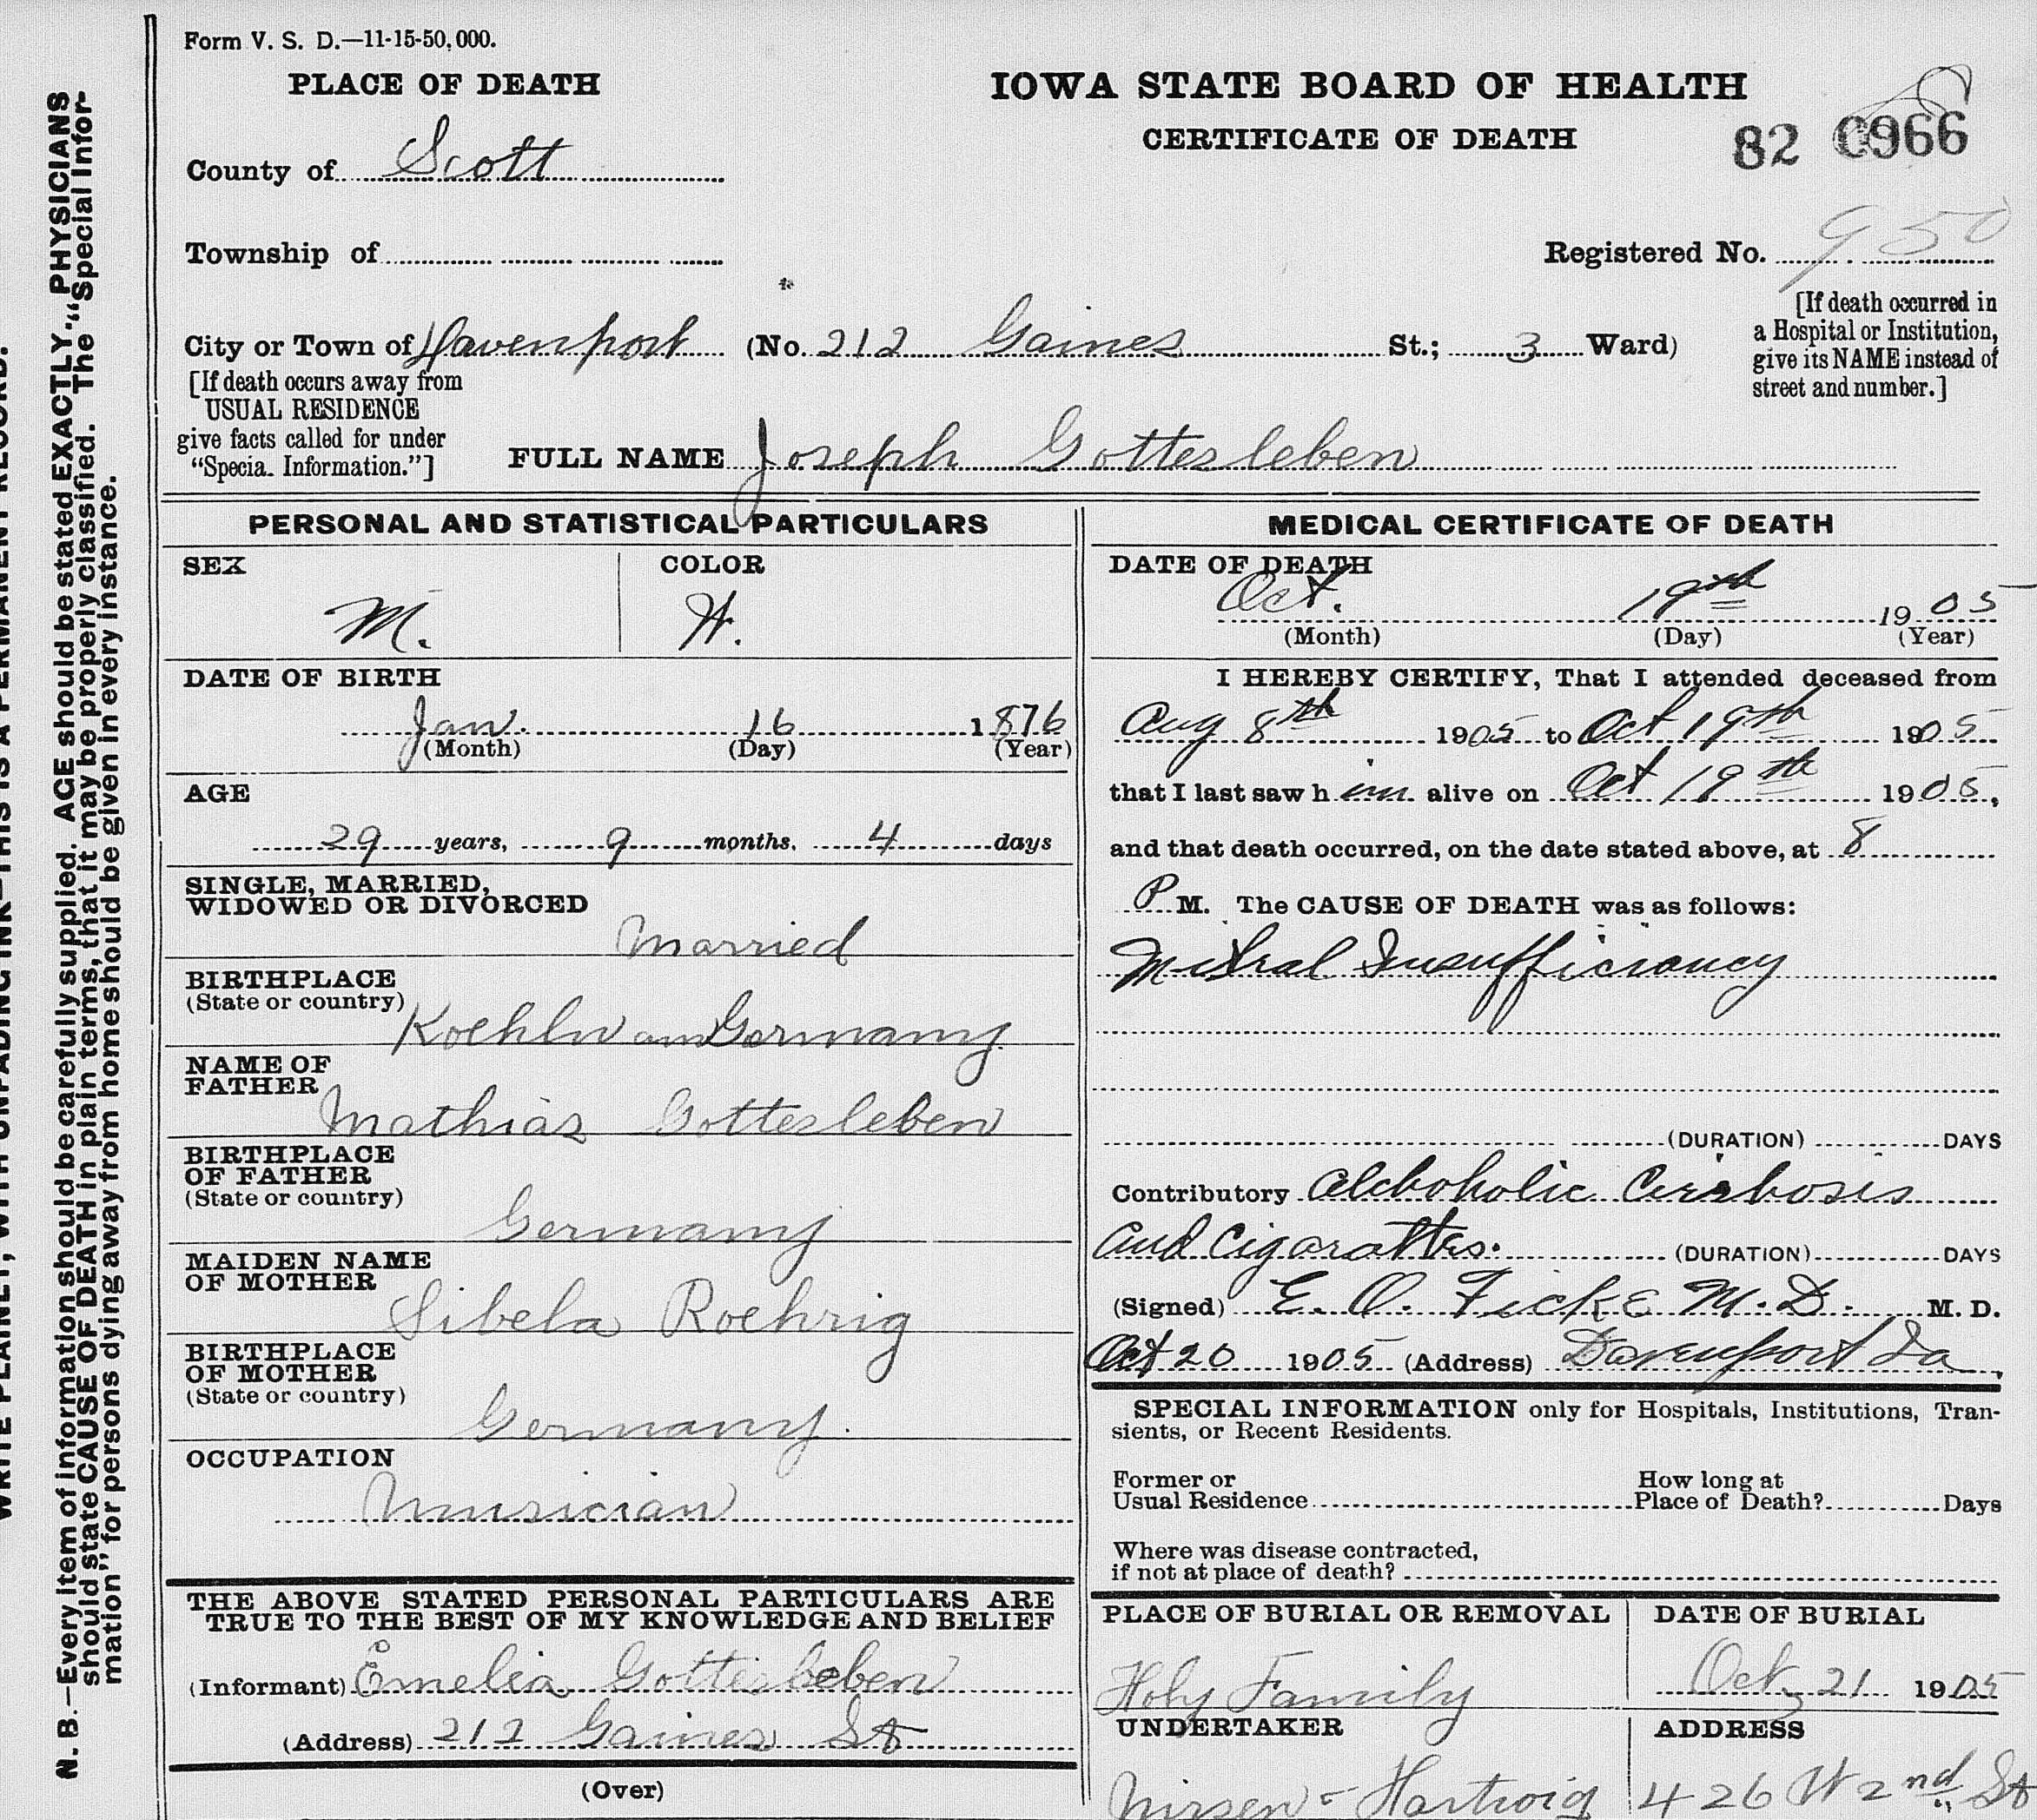 Form V. S. D.—11-15-50,000.
PLACE OF DEATH
IOWA STATE BOARD OF HEALTH
CERTIFICATE OF DEATH
82 C966
County of Scott
Township of
Registered No. 950
[If death occurred in
a Hospital or Institution,
give its NAME instead of
street and number.]
City or Town of Davenport (No. 212 Gaines St.; 3 Ward)
[If death occurs away from
USUAL RESIDENCE
give facts called for under
"Specia. Information."]
FULL NAME Joseph Gottesleben
PERSONAL AND STATISTICAL PARTICULARS
SEX COLOR
M. W.
DATE OF BIRTH
Jan. 16 1876
(Month) (Day) (Year)
AGE
29 years, 9 months, 4 days
SINGLE, MARRIED,
WIDOWED OR DIVORCED
Married
BIRTHPLACE
(State or country)
Germany
NAME OF
FATHER
Mathias Gottesleben
BIRTHPLACE
OF FATHER
(State or country)
Germany
MAIDEN NAME
OF MOTHER
Sibela Roehrig
BIRTHPLACE
OF MOTHER
(State or country)
Germany.
OCCUPATION
Musician
THE ABOVE STATED PERSONAL PARTICULARS ARE
TRUE TO THE BEST OF MY KNOWLEDGE AND BELIEF
(Informant) Emelia Gottesleben
(Address) 212 Gaines St
(Over)
MEDICAL CERTIFICATE OF DEATH
DATE OF DEATH
Oct. 19th 1905
(Month) (Day) (Year)
I HEREBY CERTIFY, That I attended deceased from
Aug 8th 1905 to Oct 19th 1905
that I last saw h im alive on Oct 19th 1905,
and that death occurred, on the date stated above, at 8
P M. The CAUSE OF DEATH was as follows:
Mitral Insufficiency
(DURATION) DAYS
Contributory Alchoholic Cirrhosis
and Cigarattes. (DURATION) DAYS
(Signed) E. O. Ficke M. D. M. D.
Oct 20 1905 (Address) Davenport Ia
SPECIAL INFORMATION only for Hospitals, Institutions, Tran-
sients, or Recent Residents.
Former or
Usual Residence
How long at
Place of Death? Days
Where was disease contracted,
if not at place of death?
PLACE OF BURIAL OR REMOVAL DATE OF BURIAL
Holy Family Oct 21 1905
UNDERTAKER ADDRESS
Hartwig 426 W 2nd St
N. B.—Every item of information should be carefully supplied. AGE should be stated EXACTLY. PHYSICIANS
should state CAUSE OF DEATH in plain terms, that it may be properly classified. The "Special Infor-
mation" for persons dying away from home should be given in every instance.
WRITE PLAINLY, WITH UNFADING INK—THIS IS A PERMANENT RECORD.